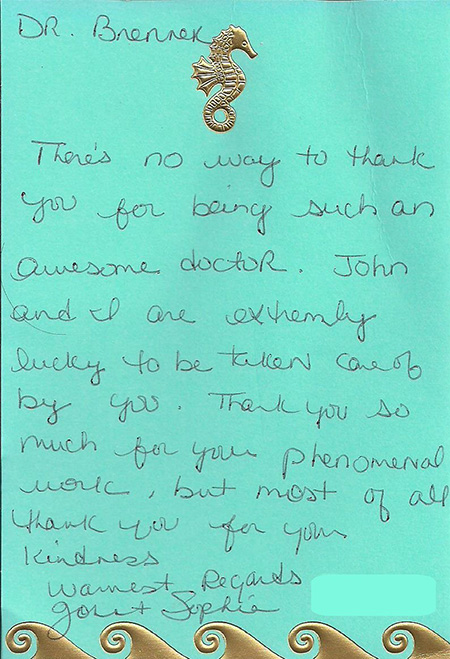 DR. Brenner
There's no way to thank
you for being such an
awesome doctor. John
and I are extremly
lucky to be taken care of
by you. Thank you so
much for your phenomenal
work, but most of all
thank you for your
kindness
Warmest Regards
Sophie